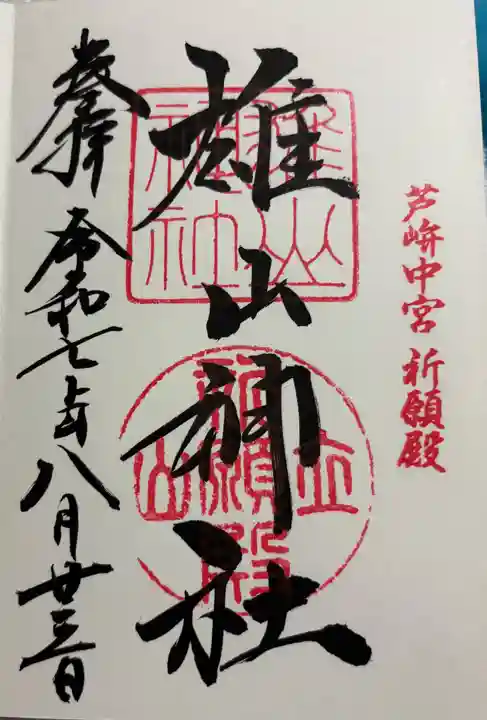 芦峅中宮 祈願殿
雄山神社
雄山神社
立山
祈願殿
奉拝 令和七年八月廿三日